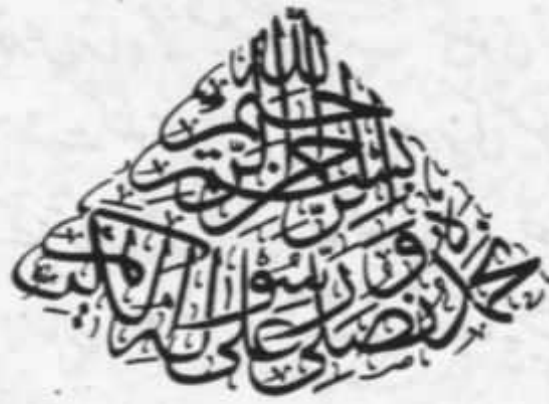 بسم الله الرحمن الرحيم
نحمده و نصلى على رسوله الكريم